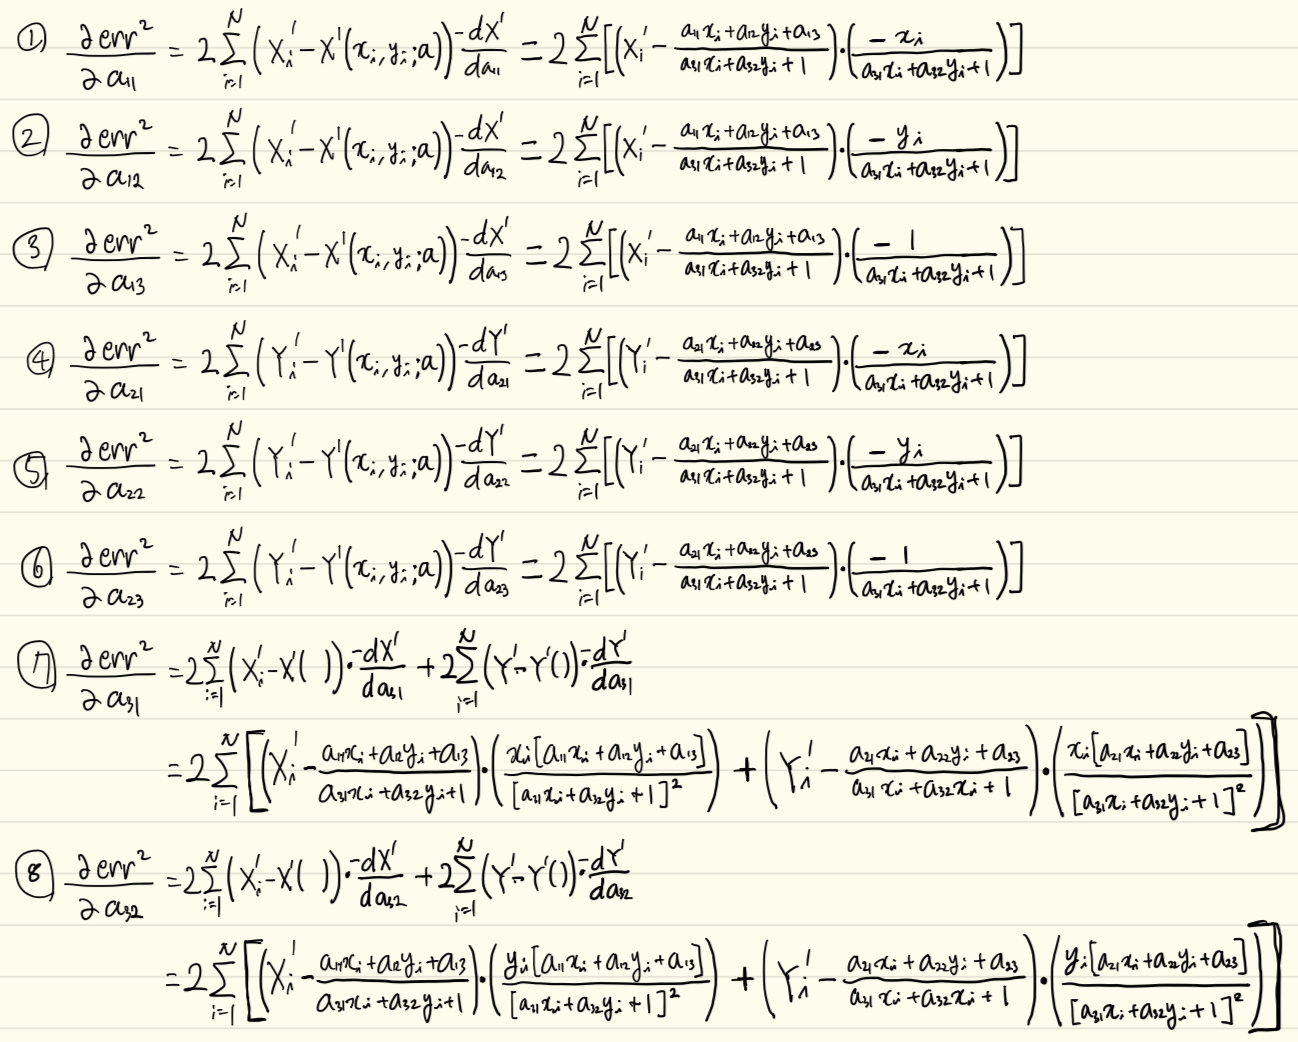 ① ∂err²/∂a₁₁ = 2 Σ_{i=1}^{N} (X_i' − X'(x_i, y_i; a)) −dX'/da₁₁ = 2 Σ_{i=1}^{N} [(X_i' − (a₁₁x_i + a₁₂y_i + a₁₃)/(a₃₁x_i + a₃₂y_i + 1)) · (−x_i/(a₃₁x_i + a₃₂y_i + 1))]
② ∂err²/∂a₁₂ = 2 Σ_{i=1}^{N} (X_i' − X'(x_i, y_i; a)) −dX'/da₁₂ = 2 Σ_{i=1}^{N} [(X_i' − (a₁₁x_i + a₁₂y_i + a₁₃)/(a₃₁x_i + a₃₂y_i + 1)) · (−y_i/(a₃₁x_i + a₃₂y_i + 1))]
③ ∂err²/∂a₁₃ = 2 Σ_{i=1}^{N} (X_i' − X'(x_i, y_i; a)) −dX'/da₁₃ = 2 Σ_{i=1}^{N} [(X_i' − (a₁₁x_i + a₁₂y_i + a₁₃)/(a₃₁x_i + a₃₂y_i + 1)) · (−1/(a₃₁x_i + a₃₂y_i + 1))]
④ ∂err²/∂a₂₁ = 2 Σ_{i=1}^{N} (Y_i' − Y'(x_i, y_i; a)) −dY'/da₂₁ = 2 Σ_{i=1}^{N} [(Y_i' − (a₂₁x_i + a₂₂y_i + a₂₃)/(a₃₁x_i + a₃₂y_i + 1)) · (−x_i/(a₃₁x_i + a₃₂y_i + 1))]
⑤ ∂err²/∂a₂₂ = 2 Σ_{i=1}^{N} (Y_i' − Y'(x_i, y_i; a)) −dY'/da₂₂ = 2 Σ_{i=1}^{N} [(Y_i' − (a₂₁x_i + a₂₂y_i + a₂₃)/(a₃₁x_i + a₃₂y_i + 1)) · (−y_i/(a₃₁x_i + a₃₂y_i + 1))]
⑥ ∂err²/∂a₂₃ = 2 Σ_{i=1}^{N} (Y_i' − Y'(x_i, y_i; a)) −dY'/da₂₃ = 2 Σ_{i=1}^{N} [(Y_i' − (a₂₁x_i + a₂₂y_i + a₂₃)/(a₃₁x_i + a₃₂y_i + 1)) · (−1/(a₃₁x_i + a₃₂y_i + 1))]
⑦ ∂err²/∂a₃₁ = 2 Σ_{i=1}^{N} (X_i' − X'( )) · −dX'/da₃₁ + 2 Σ_{i=1}^{N} (Y' − Y'()) · −dY'/da₃₁
= 2 Σ_{i=1}^{N} [(X_i' − (a₁₁x_i + a₁₂y_i + a₁₃)/(a₃₁x_i + a₃₂y_i + 1)) · (x_i[a₁₁x_i + a₁₂y_i + a₁₃]/[a₃₁x_i + a₃₂y_i + 1]²) + (Y_i' − (a₂₁x_i + a₂₂y_i + a₂₃)/(a₃₁x_i + a₃₂x_i + 1)) · (x_i[a₂₁x_i + a₂₂y_i + a₂₃]/[a₃₁x_i + a₃₂y_i + 1]²)]
⑧ ∂err²/∂a₃₂ = 2 Σ_{i=1}^{N} (X_i' − X'( )) · −dX'/da₃₂ + 2 Σ_{i=1}^{N} (Y' − Y'()) · −dY'/da₃₂
= 2 Σ_{i=1}^{N} [(X_i' − (a₁₁x_i + a₁₂y_i + a₁₃)/(a₃₁x_i + a₃₂y_i + 1)) · (y_i[a₁₁x_i + a₁₂y_i + a₁₃]/[a₃₁x_i + a₃₂y_i + 1]²) + (Y_i' − (a₂₁x_i + a₂₂y_i + a₂₃)/(a₃₁x_i + a₃₂x_i + 1)) · (y_i[a₂₁x_i + a₂₂y_i + a₂₃]/[a₃₁x_i + a₃₂y_i + 1]²)]